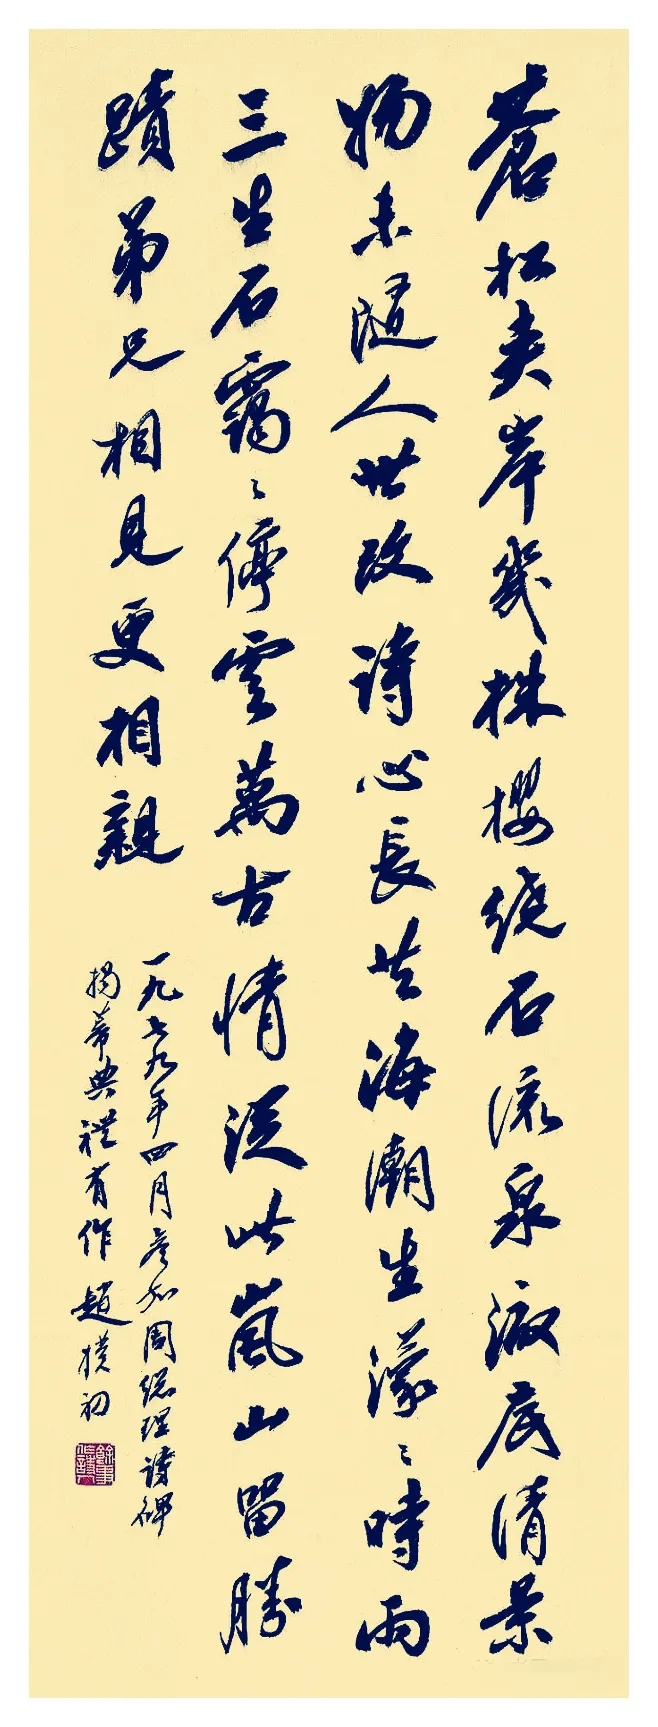 蒼松夾岸幾株櫻繞石流泉澈底清景
物未隨人世改詩心長共海潮生濛〻時雨
三生石靄〻停雲萬古情從此嵐山留勝
蹟弟兄相見更相親
一九七九年四月参加周總理詩碑
揭幕典禮有作 趙樸初